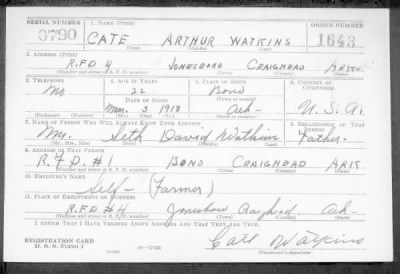 SERIAL NUMBER 1. NAME (Print) ORDER NUMBER
3790 CATE ARTHUR WATKINS 1643
(First) (Middle) (Last)
2. ADDRESS (Print)
R.F.D 4 JONESBORO CRAIGHEAD ARK
(Number and street or R. F. D. number) (Town) (County) (State)
3. TELEPHONE 4. AGE IN YEARS 5. PLACE OF BIRTH 6. COUNTRY OF CITIZENSHIP
No 22 Bono
DATE OF BIRTH (Town or county)
Mar. 3 1918 Ark U.S.A.
(Mo.) (Day) (Yr.) (State or country)
7. NAME OF PERSON WHO WILL ALWAYS KNOW YOUR ADDRESS 8. RELATIONSHIP OF THAT PERSON
Mr. Seth David Watkins Father
(Mr., Mrs., Miss) (First) (Middle) (Last)
9. ADDRESS OF THAT PERSON
R.F.D. #1 BONO CRAIGHEAD ARK
(Number and street or R. F. D. number) (Town) (County) (State)
10. EMPLOYER'S NAME
Self - (Farmer)
11. PLACE OF EMPLOYMENT OR BUSINESS
R.F.D #4 Jonesboro Craighead Ark
(Number and street or R. F. D. number) (Town) (County) (State)
I AFFIRM THAT I HAVE VERIFIED ABOVE ANSWERS AND THAT THEY ARE TRUE.
REGISTRATION CARD
D. S. S. Form 1 Cate Watkins
(Registrant's signature)